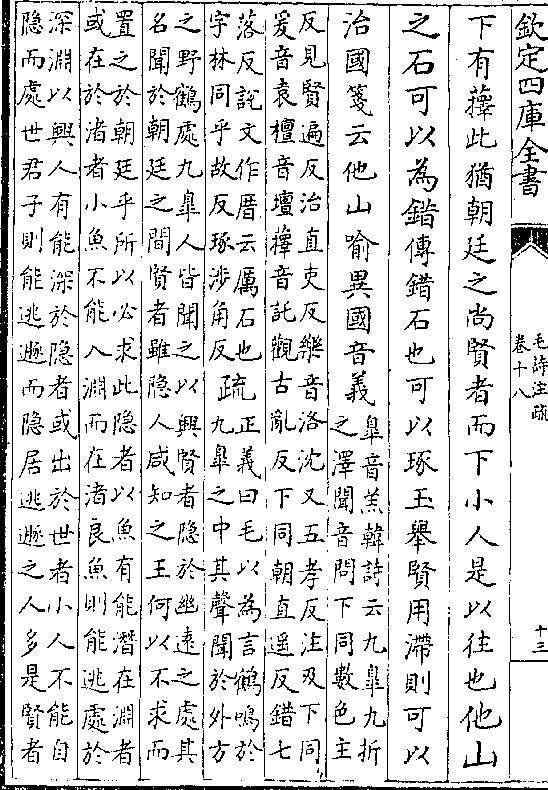 欽定四庫全書
毛詩注疏
卷十八
十三
下有蘀此猶朝廷之尚賢者而下小人是以往也他山
之石可以為錯傳錯石也可以琢玉舉賢用滯則可以
治國箋云他山喻異國音義
臯音羔韓詩云九臯九折
之澤聞音問下同數色主
反見賢遍反治直吏反樂音洛沈又五孝反注及下同
爰音袁檀音壇蘀音託觀古亂反下同朝直遥反錯七
落反說文作厝云厲石也
字林同乎故反琢涉角反
疏
正義曰毛以為言鶴鳴於
九臯之中其聲聞於外方
之野鶴處九臯人皆聞之以興賢者隐於幽遠之處其
名聞於朝廷之間賢者雖隐人咸知之王何以不求而
置之於朝廷乎所以必求此隐者以魚有能潛在淵者
或在於渚者小魚不能入淵而在渚良魚則能逃處於
深淵以興人有能深於隐者或出於世者小人不能自
隐而處世君子則能逃遯而隐居逃遯之人多是賢者